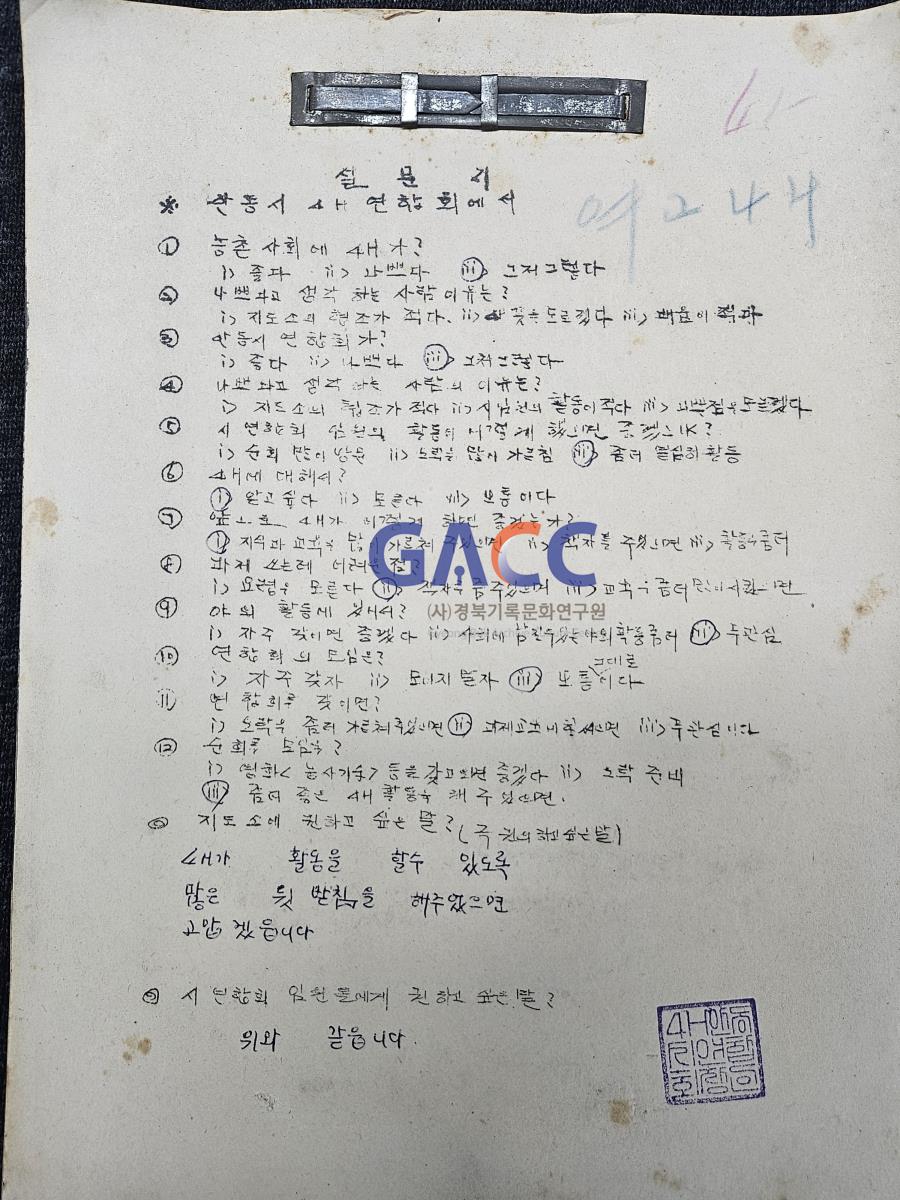 설문지
※ 안동시 4H 연합회에서
① 농촌 사회에 4H가?
i) 좋다 ii) 나쁘다 iii) 그저그렇다
② 나쁘다고 생각 하는 사람 이유는?
i) 지도소의 협조가 적다. ii) 뜻을 모르겠다 iii)
③ 안동시 연합회가?
i) 좋다 ii) 나쁘다 iii) 그저그렇다
④ 나쁘다고 생각 하는 사람의 이유는?
i) 지도소의 협조가 적다 ii) 시임원의 활동이 적다 iii) 나쁜점을 모르겠다
⑤ 시 연합회 임원의 활동이 어떻게 했으면 좋겠는가?
i) 순회 많이 방문 ii) 오락을 많이 가르침 iii) 좀더 열심히 활동
⑥ 4H에 대해서?
i) 알고 싶다 ii) 모른다 iii) 보통이다
⑦ 앞으로 4H가 어떻게 하면 좋겠는가?
i) 지식과 교육을 많이 가르쳐 주었으면 ii) 책자를 주었으면 iii) 활동을 좀더
⑧ 과제 쓰는데 어려운 점?
i) 요령을 모른다 ii) 책자를 좀 주었으면 iii) 교육을 좀더
⑨ 야외 활동에 있어서?
i) 자주 갖이면 좋겠다 ii) 사회에 야외활동좀더 iii) 무관심
⑩ 연합회의 모임은?
i) 자주 갖자 ii) 모이지 말자 iii) 보통 그대로 이다
⑪ 연합회를 갖이면?
i) 오락을 좀더 가르쳐주었으면 ii) 했으면 iii) 무관심이다
⑫ 순회를 모임을?
i) 영화<농사기술> 등을 갖고오면 좋겠다 ii) 오락 준비
iii) 좀더 좋은 4H 활동을 해 주었으면.
◎ 지도소에 권하고 싶은 말? (즉 건의하고싶은말)
4H가 활동을 할수 있도록
많은 뒷 받침을 해주었으면
고맙겠읍니다
◎ 시 연합회 임원들에게 권하고 싶은 말?
위와 같읍니다.
여고 4H
GACC
(사)경북기록문화연구원